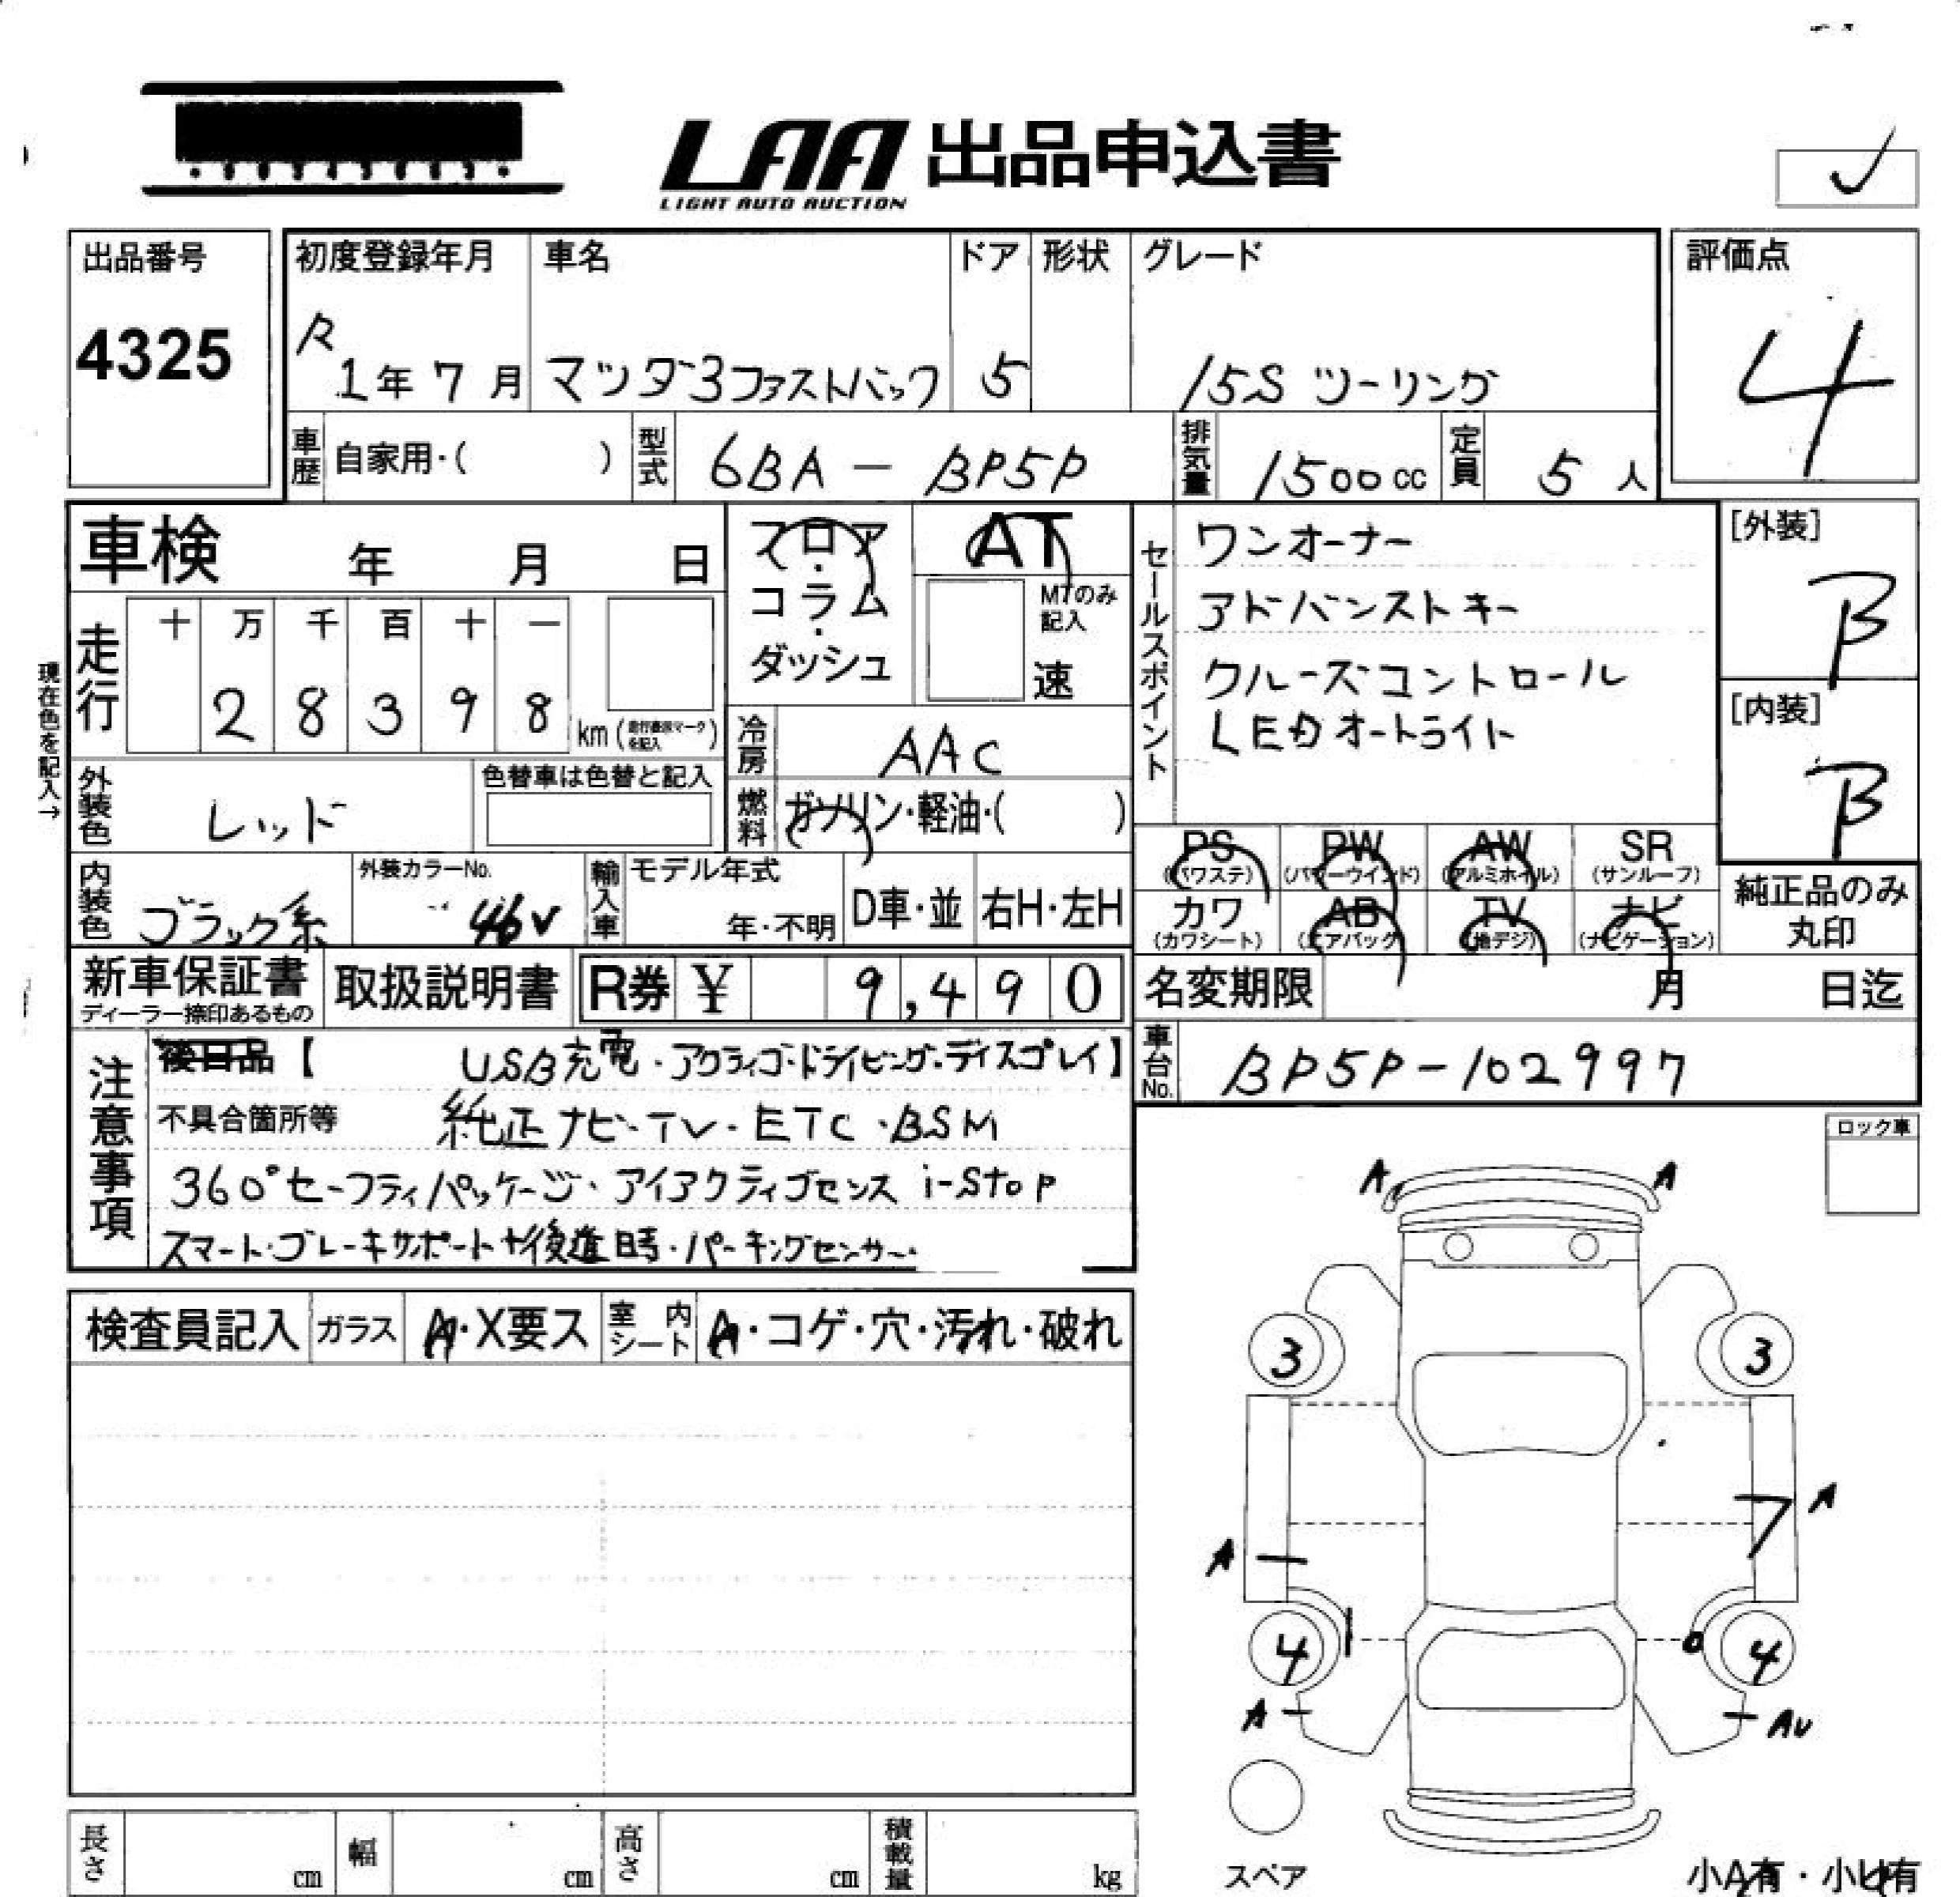 LAA 出品申込書
LIGHT AUTO AUCTION
出品番号
4325
初度登録年月 車名 ドア 形状 グレード
R 1年 7月 マツダ3ファストバック 5 15S ツーリング
評価点
4
車歴 自家用・( ) 型式 6BA - BP5P 排気量 1500cc 定員 5人
車検 年 月 日
フロア・コラム・ダッシュ
AT
MTのみ記入
速
セールスポイント
ワンオーナー
アドバンストキー
クルーズコントロール
LEDオートライト
[外装]
B
[内装]
B
現在色を記入→
走行 十 万 千 百 十 一
2 8 3 9 8 km (走行要示マークを記入)
冷房 AAC
燃料 ガソリン・軽油・( )
外装色 レッド 色替車は色替と記入
内装色 ブラック系 外装カラーNo. 46V
輸入車 モデル年式 年・不明 D車・並 右H・左H
PS (パワステ) PW (パワーウインド) AW (アルミホイル) SR (サンルーフ)
カワ (カワシート) AB (エアバッグ) TV (地デジ) ナビ (ナビゲーション)
純正品のみ丸印
新車保証書 ディーラー捺印あるもの 取扱説明書 R券 ¥ 9,490
名変期限 月 日迄
車台No. BP5P-102997
注意事項
後日品【 USB充電・アクティブ・ドライビング・ディスプレイ】
不具合箇所等 純正ナビ・TV・ETC・BSM
360°セーフティパッケージ・アイアクティブセンス i-stop
スマート・ブレーキサポート+後進時・パーキングセンサー
ロック車
検査員記入 ガラス A・X要ス 室内シート A・コゲ・穴・汚れ・破れ
A A
3 3
A
A
4 4
A AU
スペア
小A有・小U有
長さ cm 幅 cm 高さ cm 積載量 kg